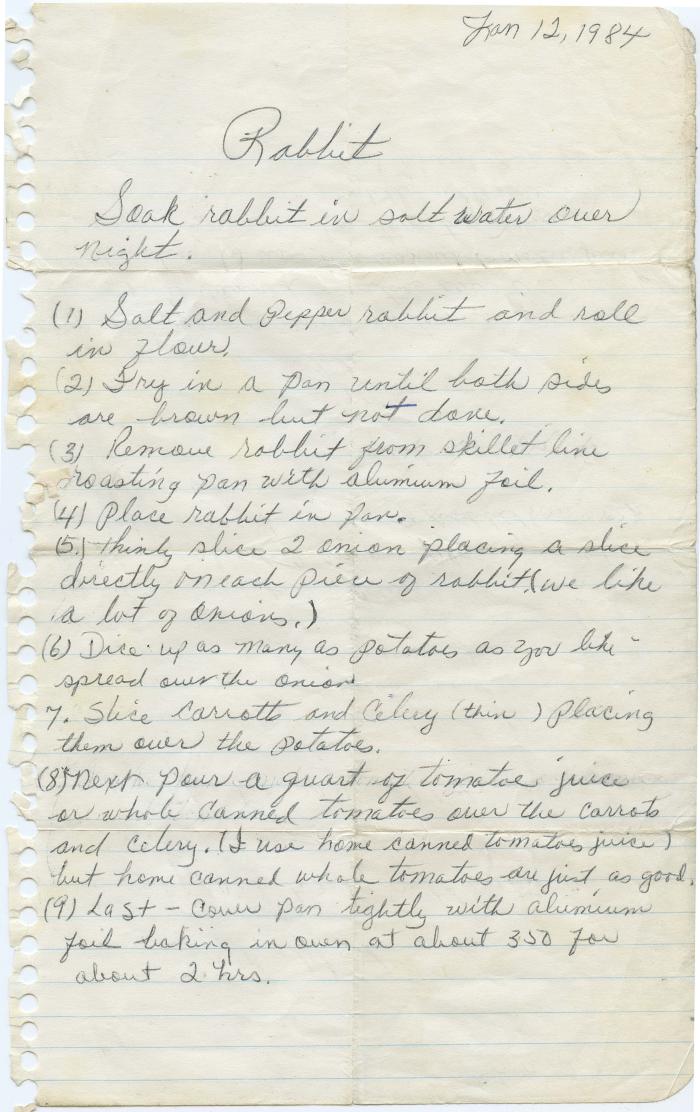 Jan 12, 1984
Rabbit
Soak rabbit in salt water over
night.
(1) Salt and Pepper rabbit and roll
in flour.
(2) Fry in a pan until both sides
are brown but not done.
(3) Remove rabbit from skillet line
roasting pan with alumium foil.
(4) Place rabbit in pan.
(5.) Thinly slice 2 onion placing a slice
directly on each piece of rabbit. (we like
a lot of onions.)
(6) Dice up as many as potatoes as you like -
spread over the onion
7. Slice Carrotts and Celery (thin) placing
them over the potatoes.
(8) Next pour a quart of tomatoe juice
or whole canned tomatoes over the carrots
and celery. (I use home canned tomatoes juice)
but home canned whole tomatoes are just as good.
(9) Last - Cover pan tightly with alumium
foil baking in oven at about 350 for
about 2 hrs.